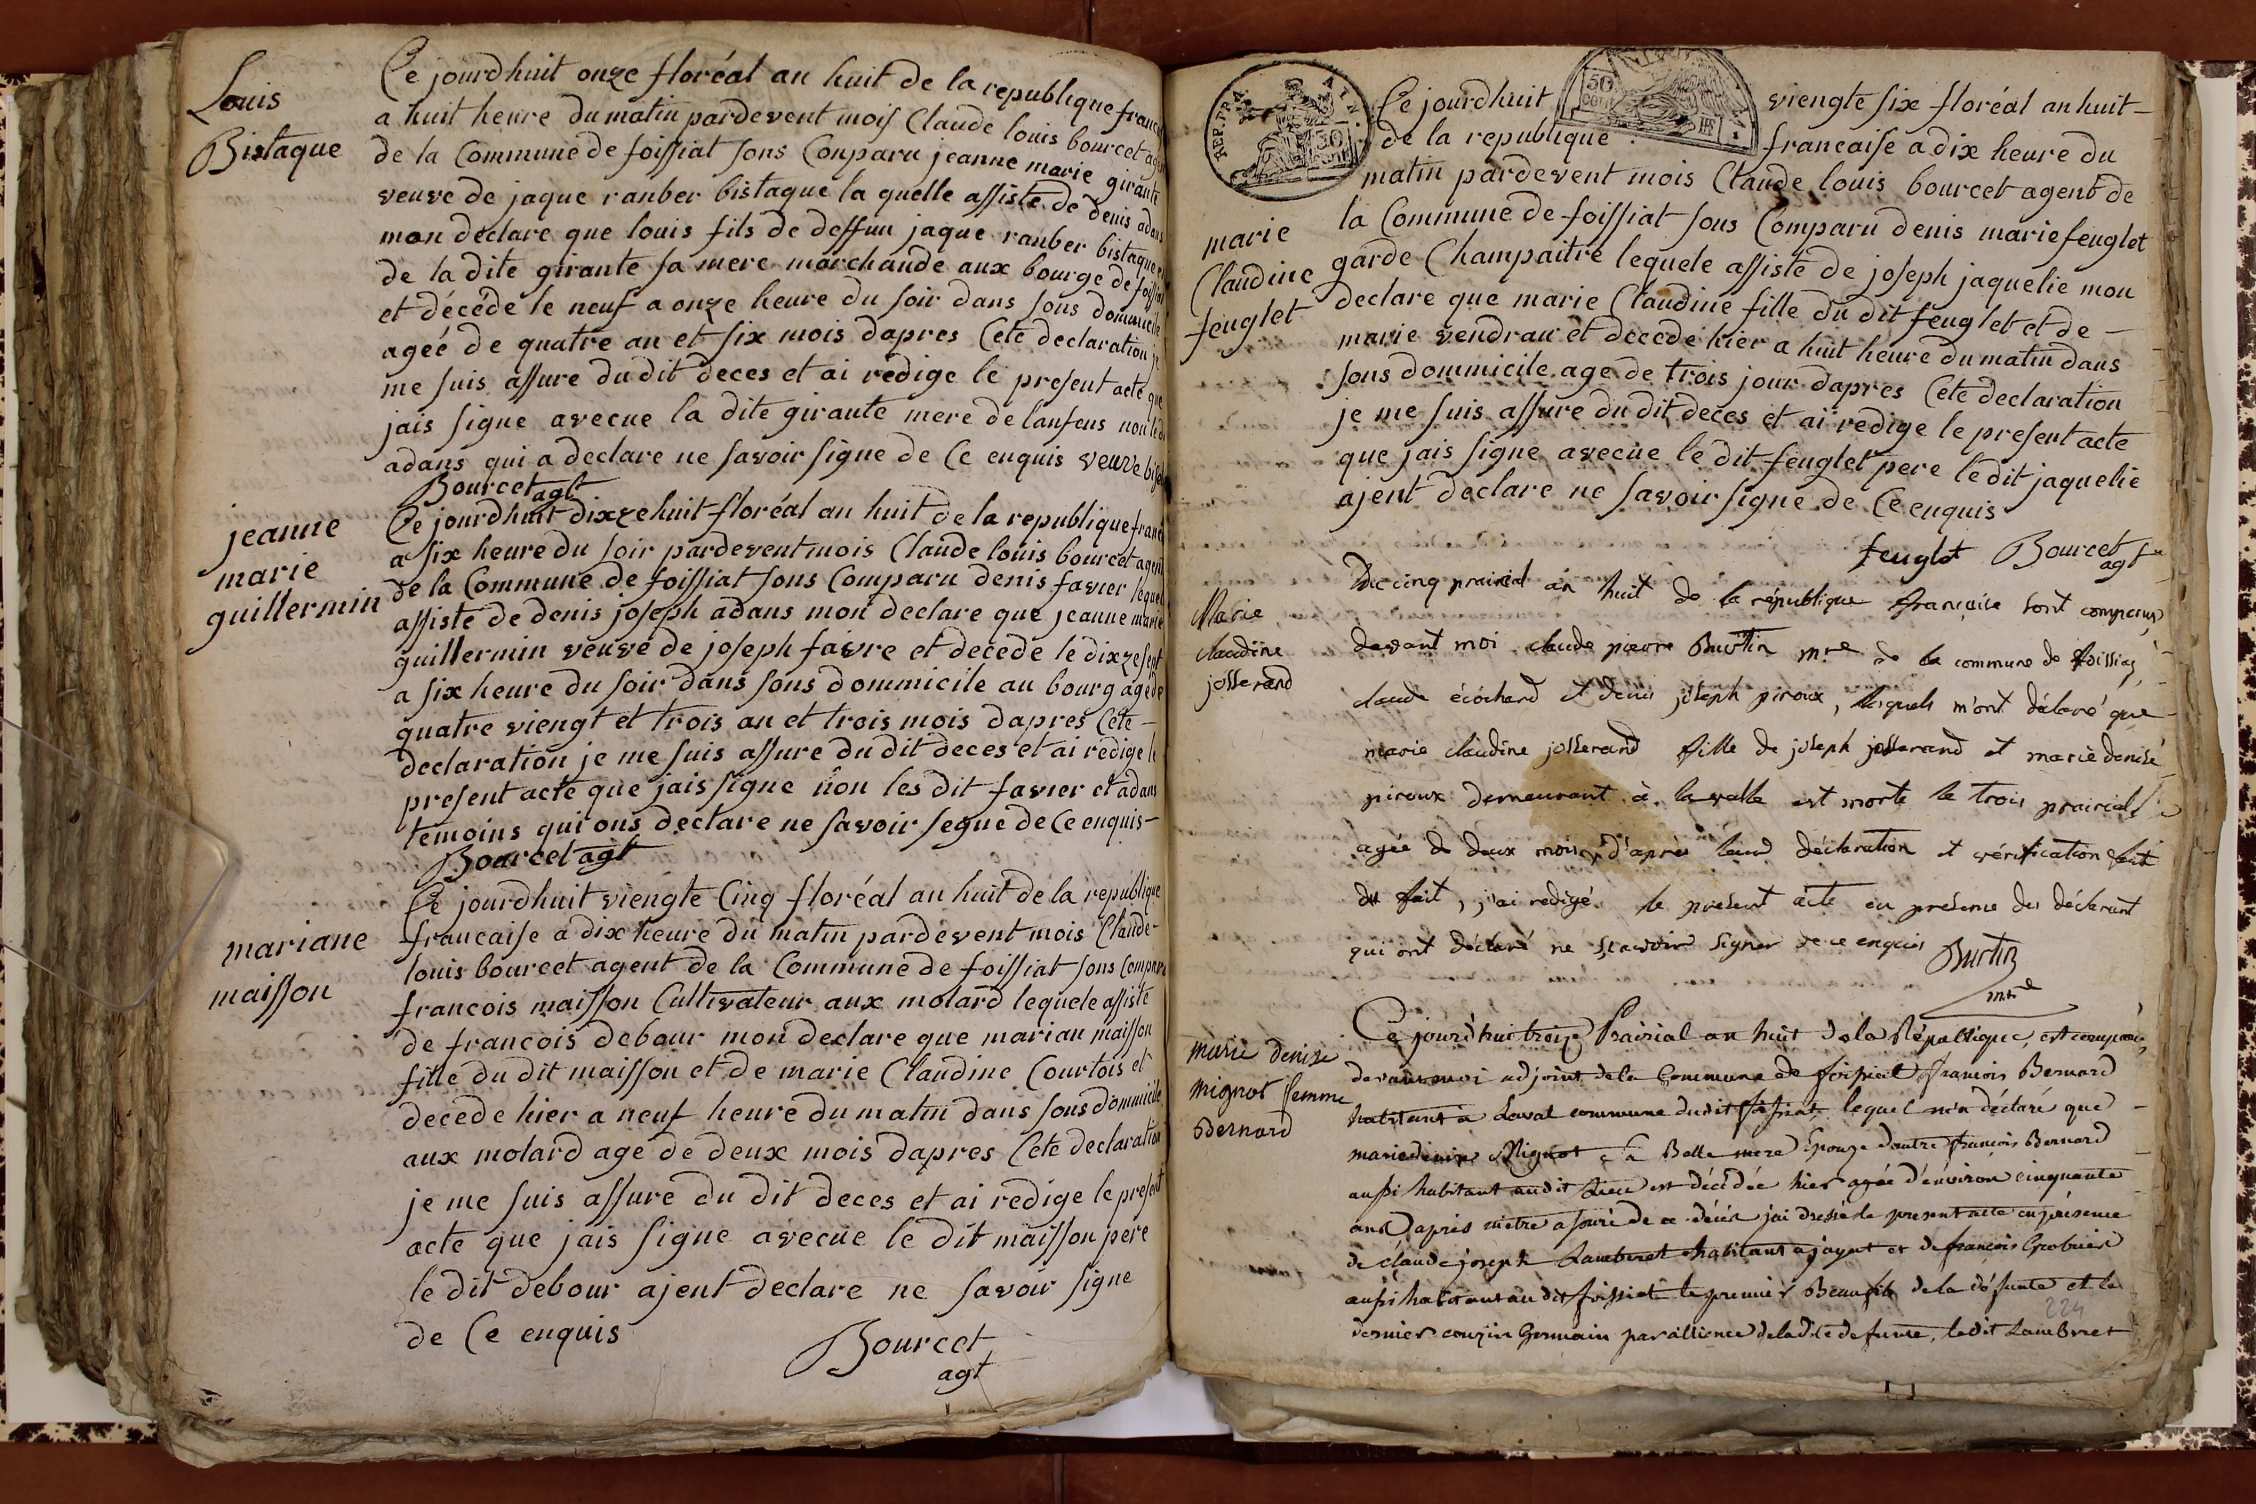 Louis
Bistaque
Ce jourdhuit onze floréal an huit de la republique franc
a huit heure du matin pardevent mois Claude louis bourcet agen
de la Commune de foissiat sons Conparu jeanne marie girante
veuve de jaque ranber bistaque la quelle assiste de denis adans
mon declare que louis fils de deffun jaque ranber bistaque et
de la dite girante sa mere marchande aux bourge de foissiat
et décéde le neuf a onze heure du soir dans sons domicile
ageé de quatre an et six mois dapres Cete declaration je
me suis assure du dit deces et ai redige le present acte que
jais signe avecue la dite girante mere de lanfens non le dit
adans qui a declare ne savoir signe de Ce enquis veuve bis
Bourcet agt
jeanne
marie
guillermin
Ce jourdhuit dixzehuit floréal an huit de la republique franc
a six heure du soir pardevent mois Claude louis bourcet agent
de la Commune de foissiat sons Comparu denis favier lequel
assiste de denis joseph adans mon declare que jeanne marie
guillermin veuve de joseph faivre et decede le dixzesept
a six heure du soir dans sons dommicile au bourg age de
quatre viengt et trois an et trois mois dapres Cete
declaration je me suis assure du dit deces et ai redige le
present acte que jais signe non les dit favier et adans
temoins qui ons declare ne savoir segne de Ce enquis
Bourcet agt
mariane
maisson
Ce jourdhuit viengte Cinq floréal an huit de la republique
francaise a dix heure du matin pardevent mois Claude
louis bourcet agent de la Commune de foissiat sons Comparu
francois maisson Cultivateur aux molard lequele assiste
de francois debour mon declare que marian maisson
fille du dit maisson et de marie Claudine Courtois et
decede hier a neuf heure du matin dans sons dommicile
aux molard age de deux mois dapres Cete declaration
je me suis assure du dit deces et ai redige le present
acte que jais signe avecue le dit maisson pere
le dit debour ajent declare ne savoir signe
de Ce enquis
Bourcet
agt
REP. FRA. AIN.
50
50
Ce jourdhuit viengte six floréal an huit
de la republique francaise a dix heure du
matin pardevent mois Claude louis bourcet agent de
marie
Claudine
feuglet
la Commune de foissiat sons Comparu denis marie feuglet
garde Champaitre lequele assiste de joseph jaquelie mon
declare que marie Claudine fille du dit feuglet et de
marie vendrau et decede hier a huit heure du matin dans
sons dommicile age de trois jour dapres Cete declaration
je me suis assure du dit deces et ai redige le present acte
que jais signe avecue le dit feuglet pere le dit jaquelie
ajent declare ne savoir signe de Ce enquis
feuglet Bourcet
agt
Marie
claudine
josserand
Du cinq prairial an huit de la république française sont comparus
devant moi claude pierre Burtin mre de la commune de foissiat,
claude écochard et denis joseph piroux, lesquels m'ont déclaré que
marie claudine josserand fille de joseph josserand et marie denise
piroux demeurant à la valle est morte le trois prairial
agée de deux mois, d'après leur déclaration et vérification fait
du fait, j'ai redigé le présent acte en présence des déclarant
qui ont déclaré ne sçavoir signer de ce enquis Burtin
mre
marie denise
mignot femme
Bernard
Ce jourd'hui treize Prairial an huit de la République, est comparu,
devant moi adjoint de la Commune de foissiat françois Bernard
habitant à Laval commune dudit foissiat lequel m'a déclaré que
marie denise Mignot sa Belle mere Epouze d'autre françois Bernard
aussi habitant audit Lieu est décédée hier agée d'environ cinquante
ans, après m'etre assuré de ce décès jai dressé le present acte en présence
de claude joseph Lambret habitant a jayat et de françois Grobuier
aussi habitant au dit foissiat le premier Beaufils de la défunte et le
dernier couzin Germain par allience de la dite defunte, le dit Lambret
224